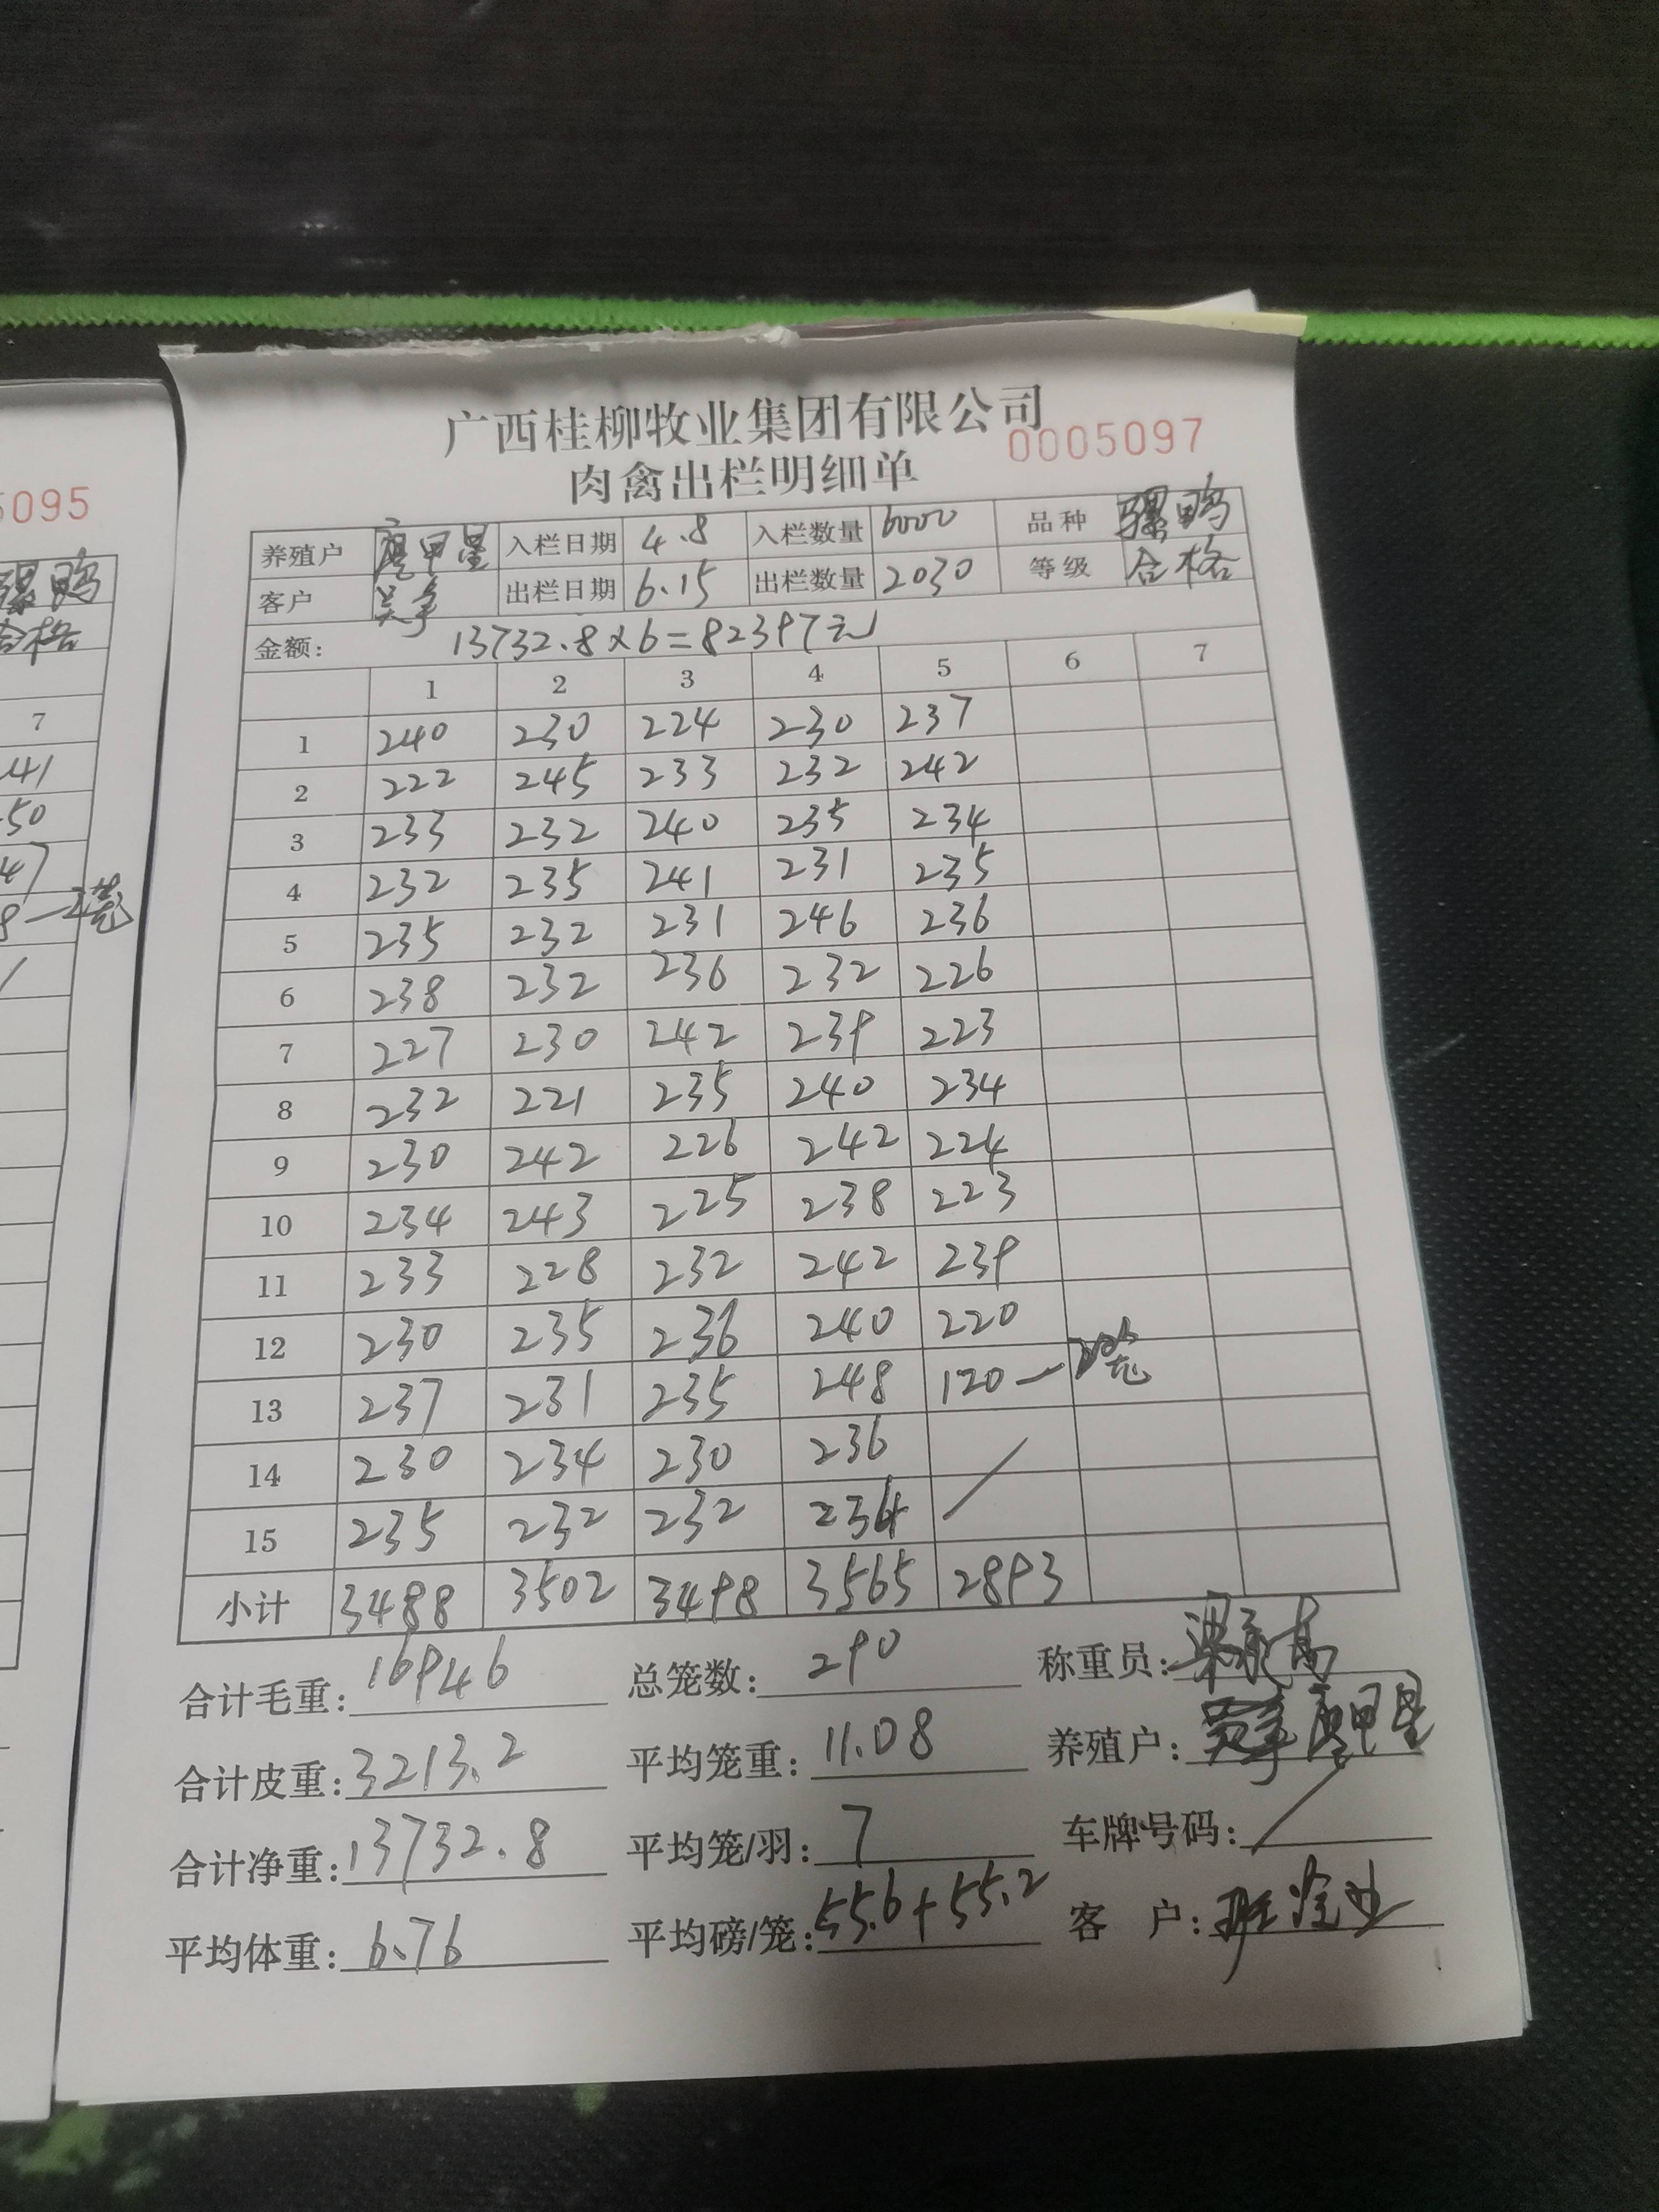 广西桂柳牧业集团有限公司
0005097
肉禽出栏明细单
养殖户 甲星 入栏日期 4.8 入栏数量 6000 品种 骡鸭
客户 出栏日期 6.15 出栏数量 2030 等级 合格
金额: 13732.8×6=82397元
1 2 3 4 5 6 7
1 240 230 224 230 237
2 222 245 233 232 242
3 233 232 240 235 234
4 232 235 241 231 235
5 235 232 231 246 236
6 238 232 236 232 226
7 227 230 242 239 223
8 232 221 235 240 234
9 230 242 226 242 224
10 234 243 225 238 223
11 233 228 232 242 239
12 230 235 236 240 220
13 237 231 235 248 120—
14 230 234 230 236
15 235 232 232 234
小计 3488 3502 3498 3565 2893
合计毛重: 16946 总笼数: 290 称重员:
合计皮重: 3213.2 平均笼重: 11.08 养殖户: 甲星
合计净重: 13732.8 平均笼/羽: 7 车牌号码: /
平均体重: 6.76 平均磅/笼: 55.6+55.2 客 户:
5095
骡鸭
合格
7
41
50
47
8